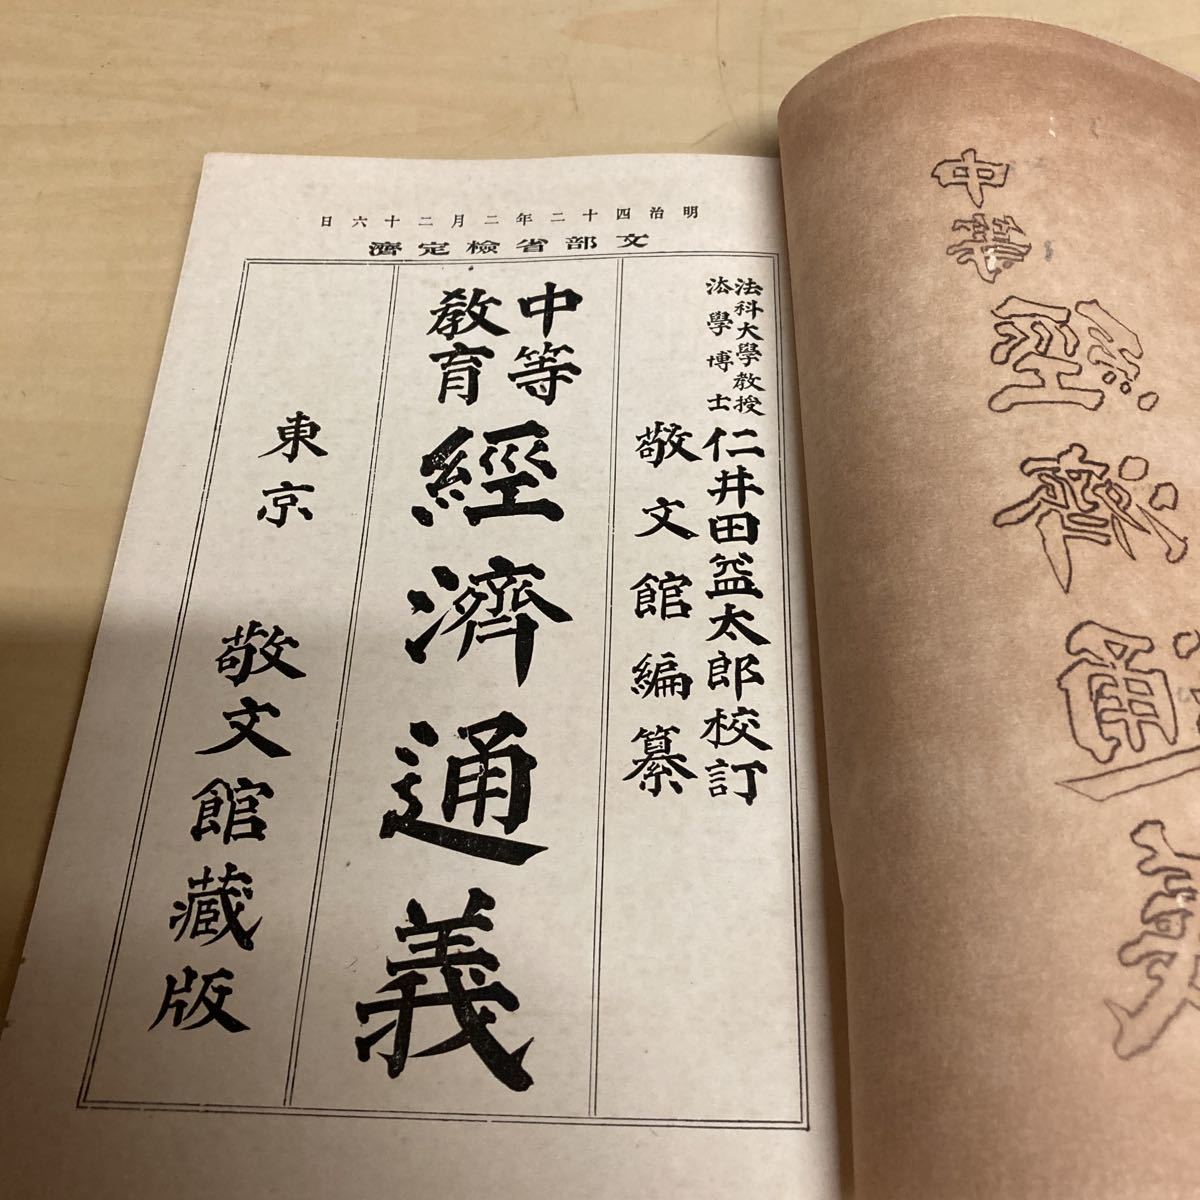 明治四十二年二月二十六日
文部省檢定濟
法科大學教授
法學博士
仁井田益太郎校訂
敬文館編纂
中等
教育
經濟通義
東京 敬文館藏版
中等
經濟通義